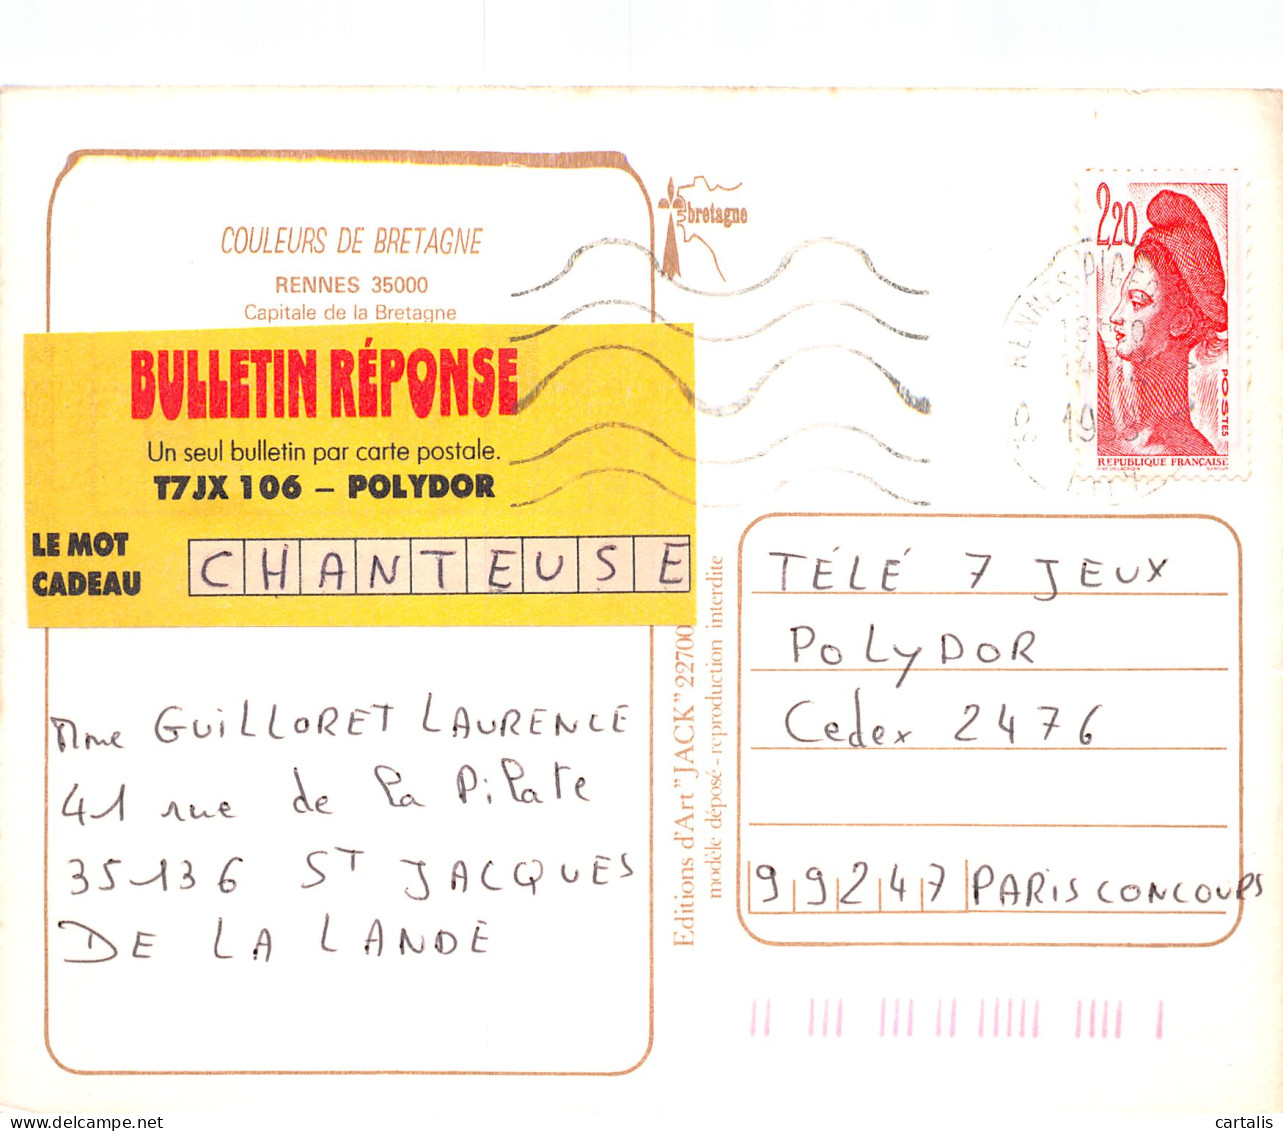 COULEURS DE BRETAGNE
RENNES 35000
Capitale de la Bretagne
bretagne
2,20
POSTES
REPUBLIQUE FRANÇAISE
BULLETIN RÉPONSE
Un seul bulletin par carte postale.
T7JX 106 – POLYDOR
LE MOT
CADEAU
CHANTEUSE
Mme GUILLORET LAURENCE
41 rue de la Pilate
35136 ST JACQUES
DE LA LANDE
Editions d'Art "JACK" 22700
modèle déposé - reproduction interdite
TÉLÉ 7 JEUX
POLYDOR
Cedex 2476
99247 PARIS CONCOURS
cartalis